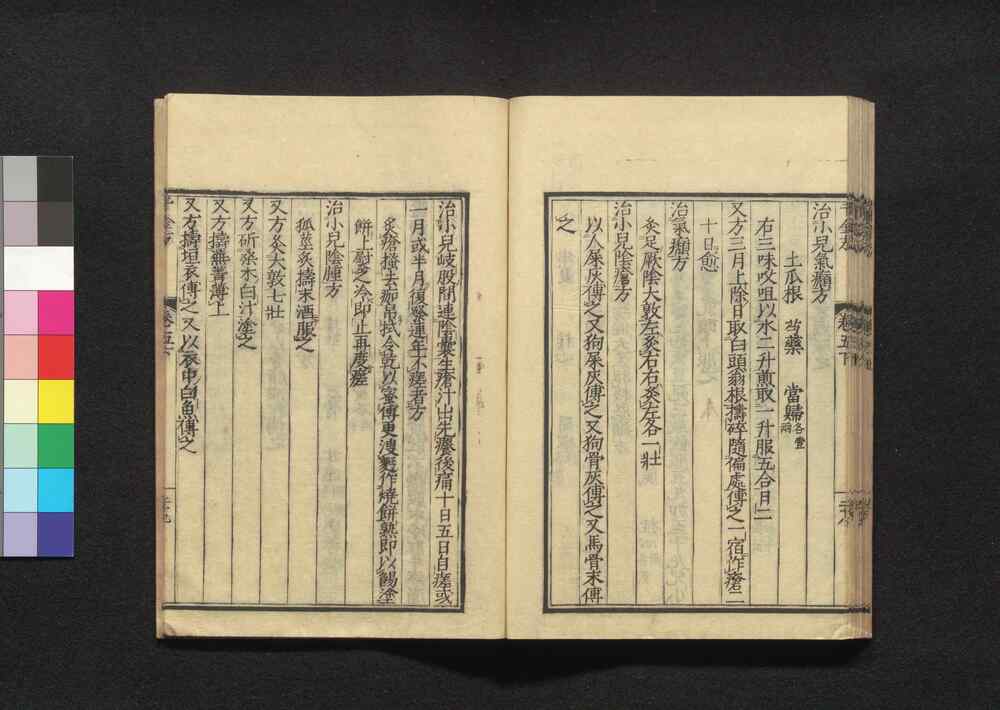 治小兒氣㿗方
土瓜根　芍藥　當歸各壹兩
右三味㕮咀以水二升煎取一升服五合日二
又方三月上除日取白頭翁根擣碎隨偏處傅之一宿作瘡二
十日愈
治氣㿗方
灸足厥陰大敦左灸右右灸左各一壯
治小兒陰瘡方
以人屎灰傅之又狗屎灰傅之又狗骨灰傅之又馬骨末傅
之
卷五下
治小兒歧股間連陰囊生瘡汁出先癢後痛十日五日自瘥或
一月或半月復發連年不瘥者方
灸瘡搔去痂帛拭令乾以蜜傅更溲麵作燒餅熟即以餳塗
餅上熨之冷即止再度瘥
治小兒陰腫方
狐莖炙擣末酒服之
又方灸大敦七壯
又方斫桑木白汁塗之
又方擣蕪菁薄上
又方擣垣衣傅之又以衣中白魚傅之
千金方
卷五下
二十九